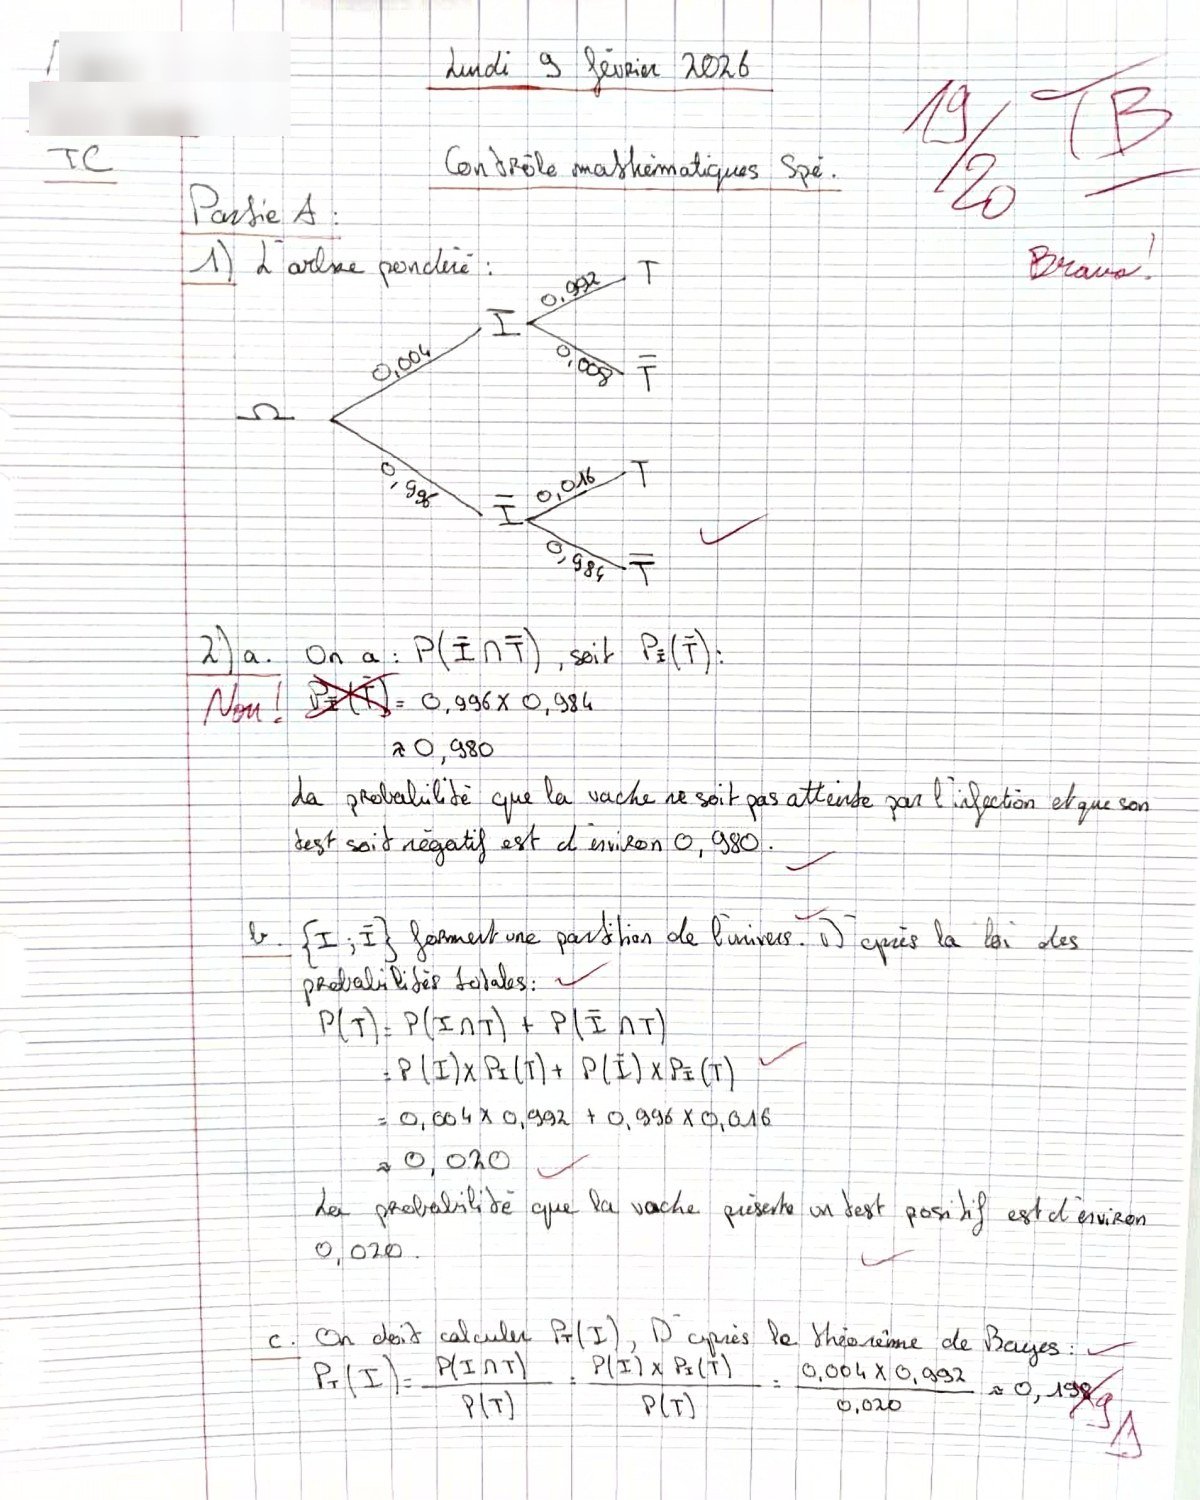 Lundi 9 février 2026
19/20 TB
TC
Contrôle mathématiques Spé.
Partie A :
Bravo !
1) L'arbre pondéré :
0,992 T
I
0,004
0,008 T̅
Ω
0,996
0,016 T
I̅
0,984 T̅
2) a. On a : P(I̅ ∩ T̅), soit P_I̅(T̅) :
Non ! P_I̅(T̅) = 0,996 × 0,984
≈ 0,980
La probabilité que la vache ne soit pas atteinte par l'infection et que son
test soit négatif est d'environ 0,980.
b. {I ; I̅} forment une partition de l'univers. D'après la loi des
probabilités totales :
P(T) = P(I ∩ T) + P(I̅ ∩ T)
= P(I) × P_I(T) + P(I̅) × P_I̅(T)
= 0,004 × 0,992 + 0,996 × 0,016
≈ 0,020
La probabilité que la vache présente un test positif est d'environ
0,020.
c. On doit calculer P_T(I), D'après le théorème de Bayes :
P_T(I) = P(I ∩ T) / P(T) = P(I) × P_I(T) / P(T) = 0,004 × 0,992 / 0,020 ≈ 0,198 9